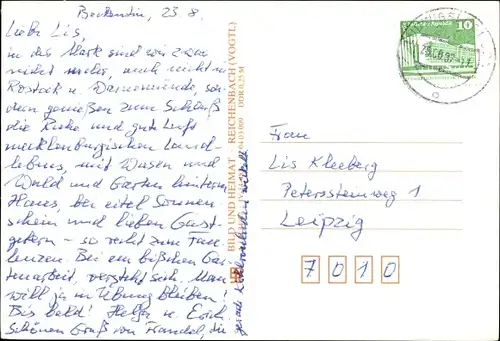 Beckentin, 23.8.
Liebe Lis,
in das Mark sind wir zwar
nicht mehr, auch nicht in
Rostock u. Warnemünde, son-
dern genießen zum Schluß
die Ruhe und gute Luft
mecklenburgischen Land-
lebens, mit Wasen und
Wald und Garten hinterm
Haus, bei eitel Sonnen-
schein und lieben Gast-
gebern – so recht zum Faul-
lenzen. Bei ein bißchen Gar-
tenarbeit, versteht sich. Man
will ja in Übung bleiben.
Bis bald! Helga u. Erich
Schönen Gruß von die
gerade
BILD UND HEIMAT REICHENBACH (VOGTL)
DDR 0,25 M
10
Frau
Lis Kleeberg
Peterssteinweg 1
Leipzig
7010